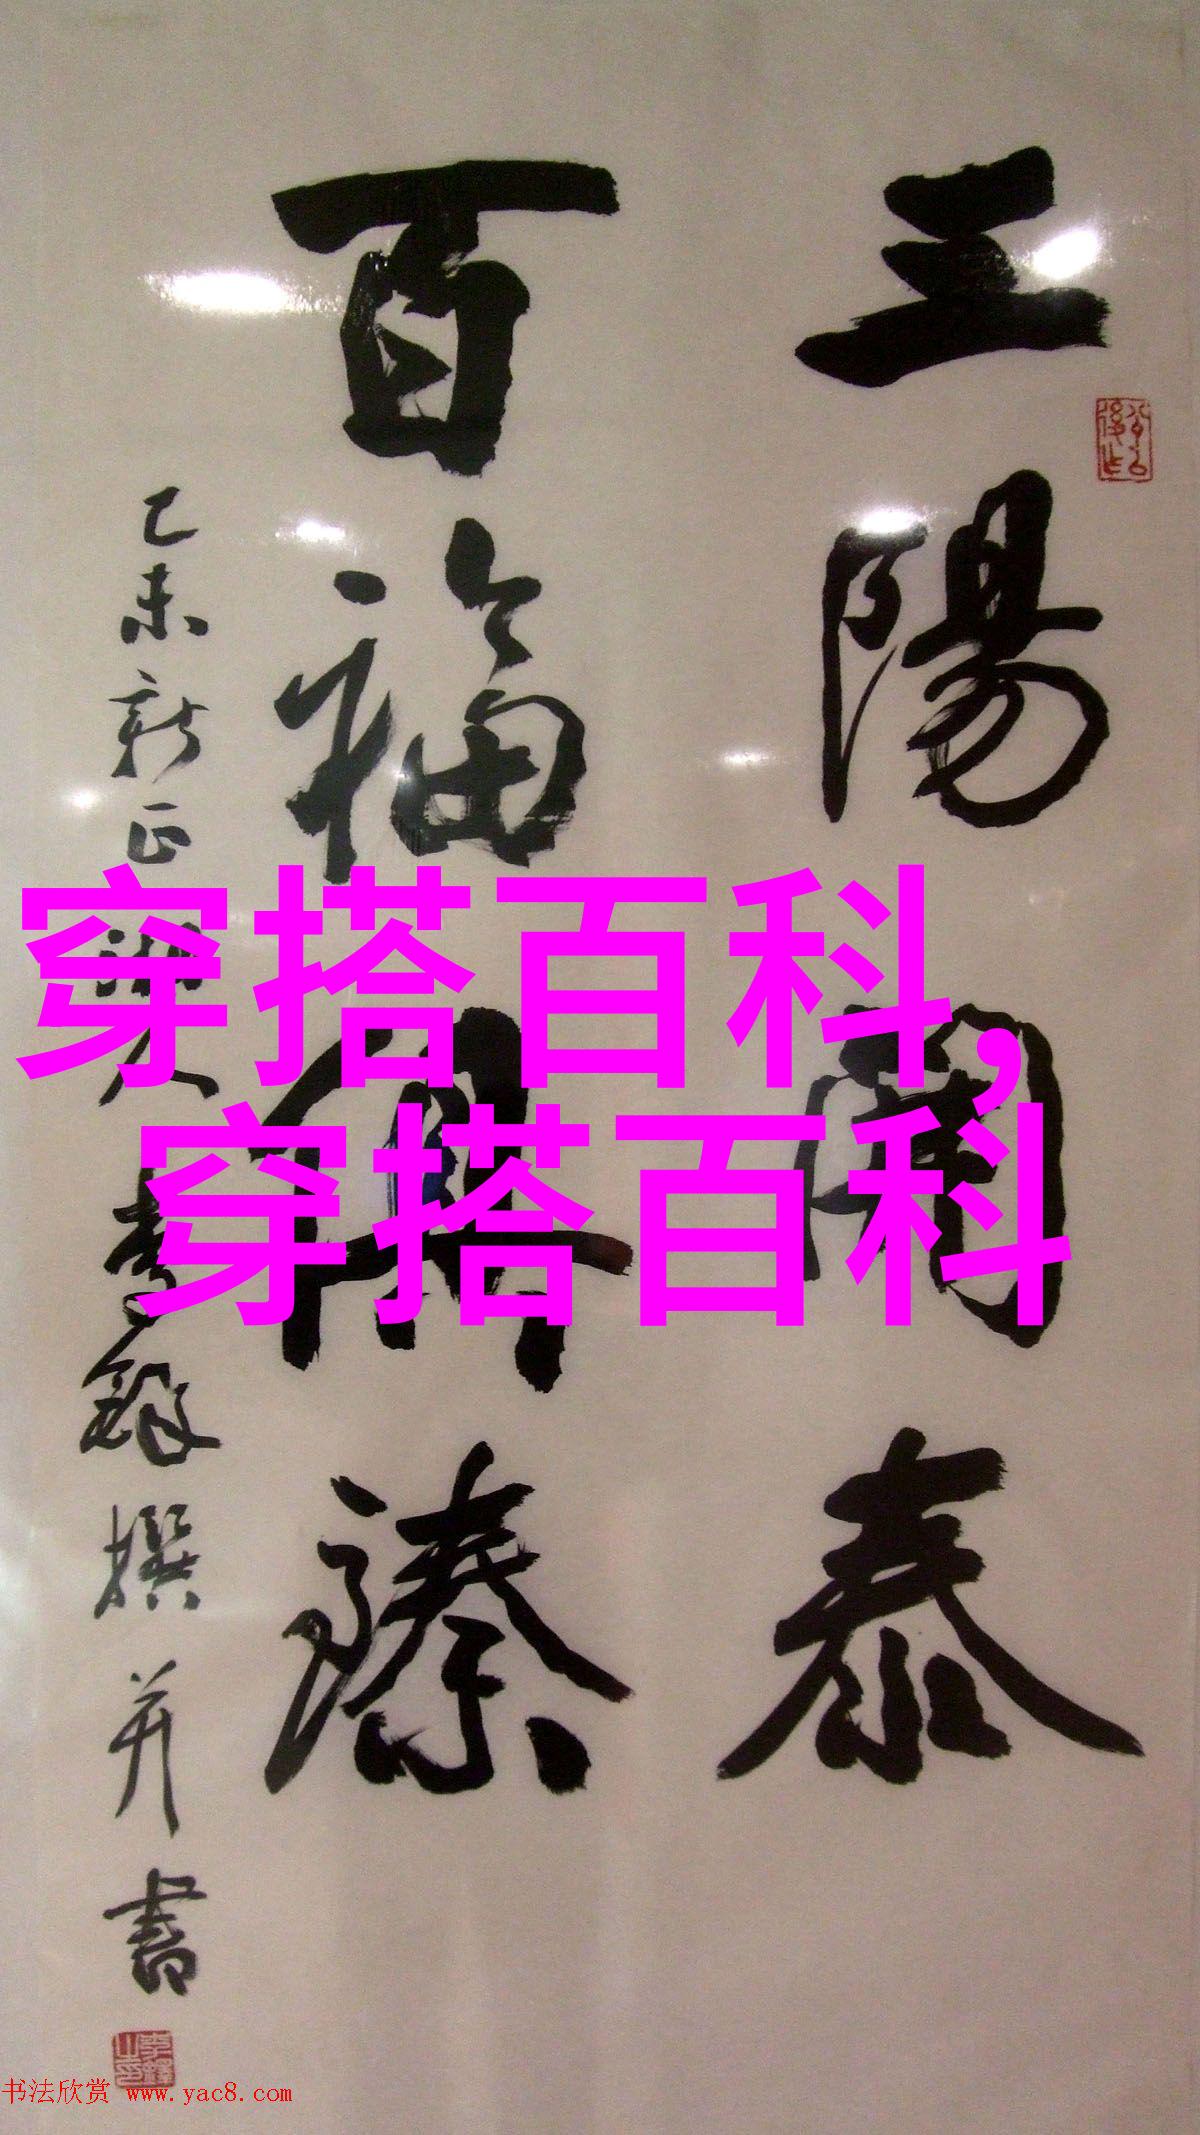 三陽開泰
百福俱臻
乙未新正湖人李鐸撰并書
穿搭百科,
穿搭百科
书法欣赏 www.yac8.com